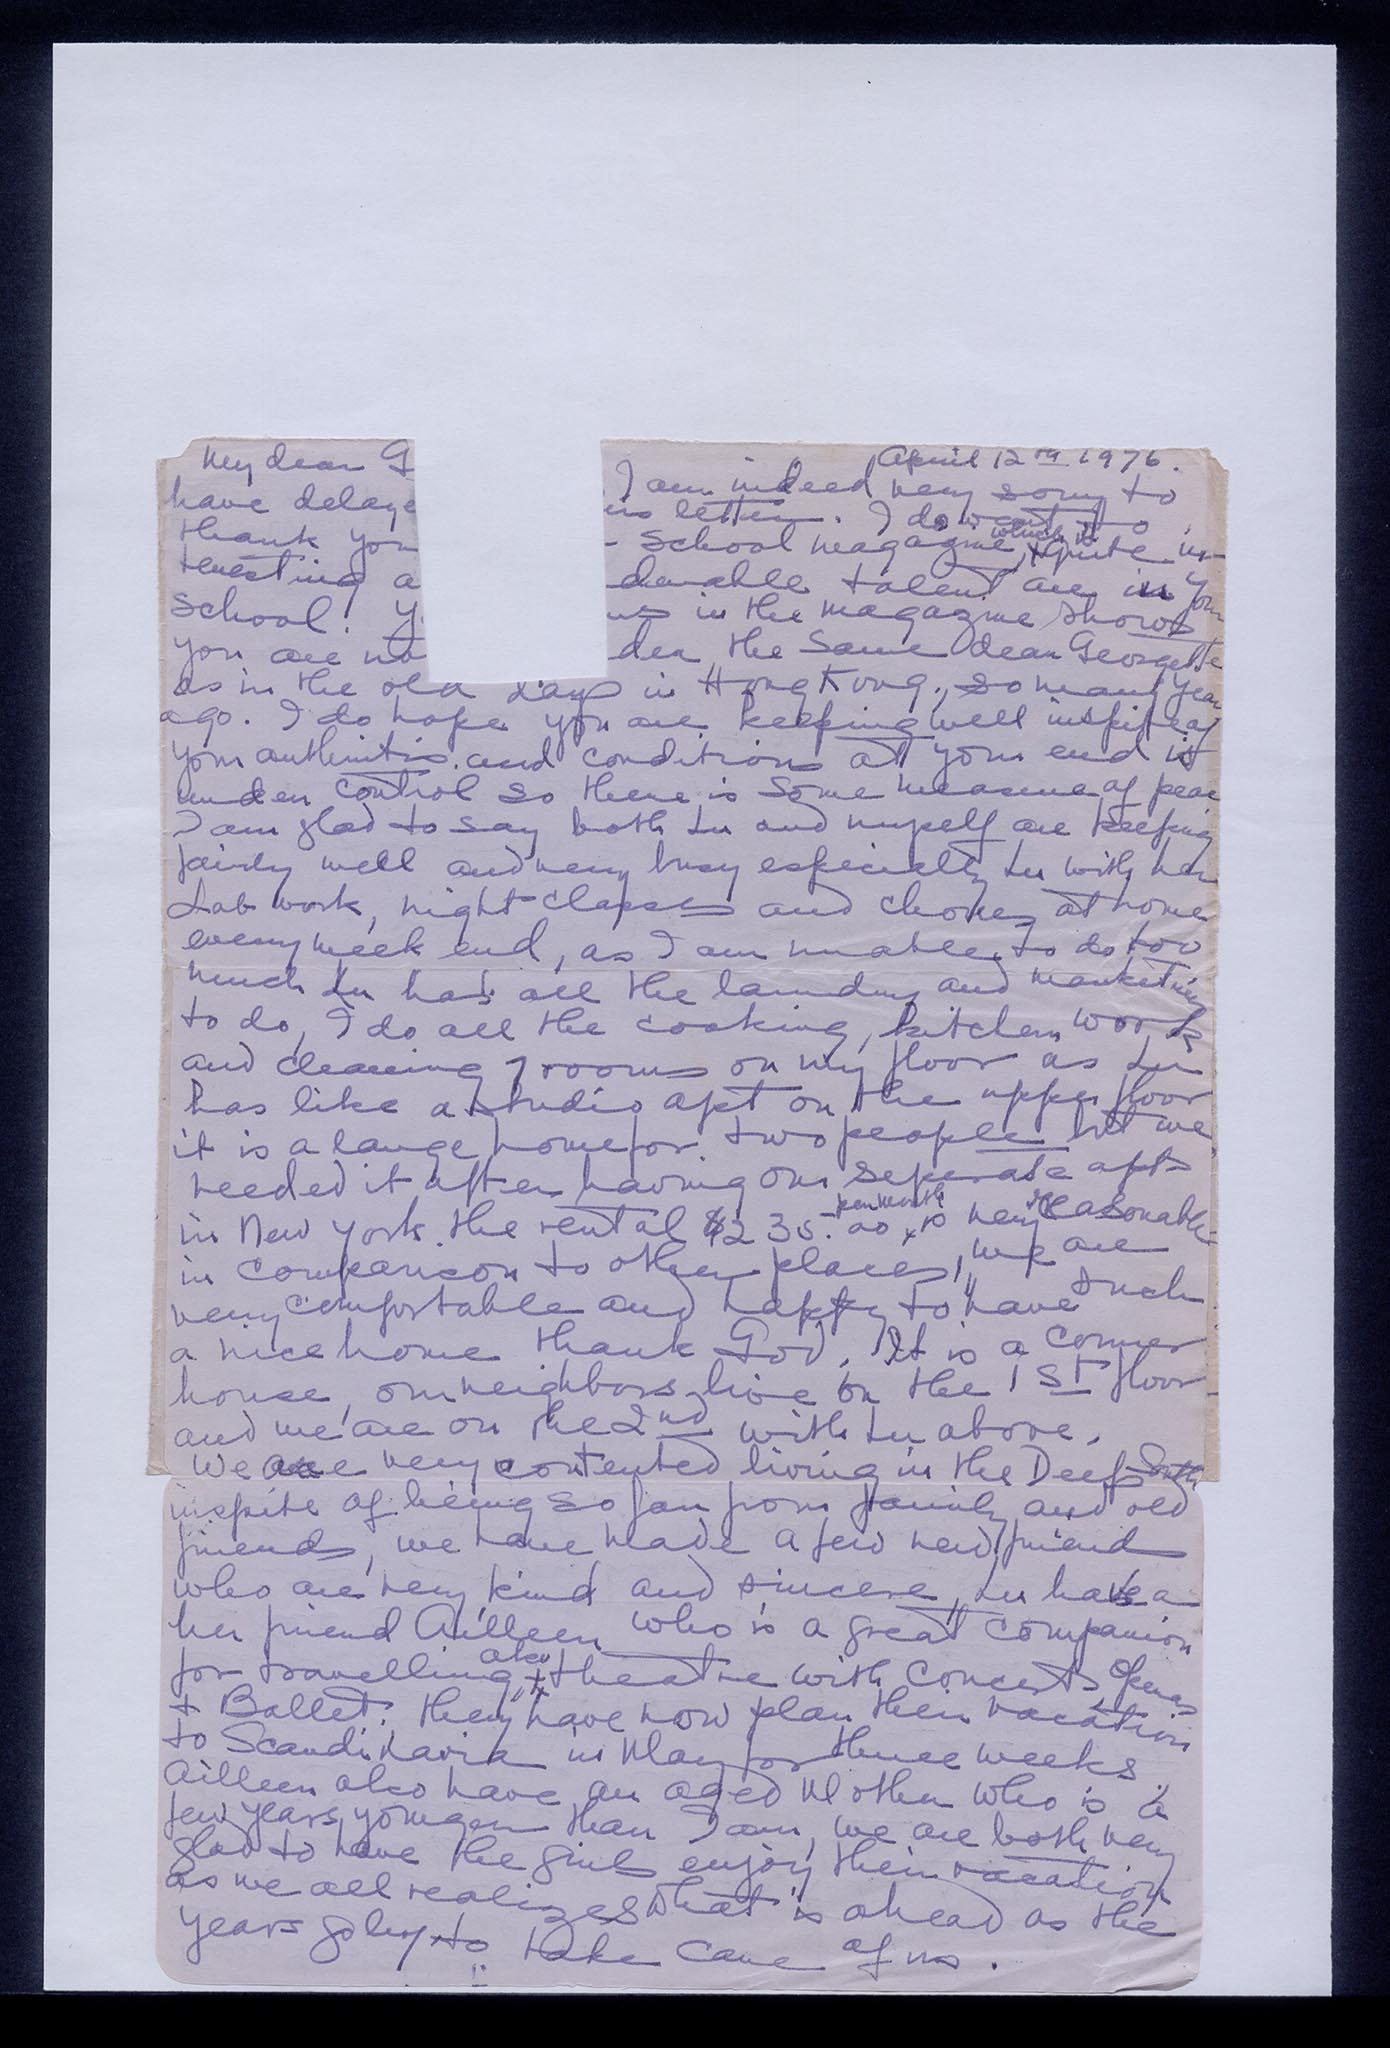 April 12th 1976.
My dear G I am indeed very sorry to
have delaye letter. I do want to
thank you - School magazine, which is quite in-
teresting a derable talent are in your
School! in the magazine shows
you are the same dear Georgette
as in the old days in Hong Kong, so many year
ago. I do hope you are keeping well inspite of
your authinitis and conditions at your end is
under control so there is some measure of peac
I am glad to say both Lu and myself are keeping
fairly well and very busy especially Lu with her
Lab work, night classes and chores at home
every week end, as I am unable to do too
much Lu has all the laundry and marketing
to do, I do all the cooking, kitchen work
and cleaning 7 rooms on my floor as Lu
has like a studio apt on the upper floor
it is a large home for two people but we
needed it after having our seperate apts
in New York. the rental $235.00 per month is very reasonable
in comparison to other places, we are
very comfortable and happy to have such
a nice home thank God. It is a corner
house, our neighbors live on the 1st floor
and we are on the 2nd with Lu above.
We are very contented living in the Deep South
inspite of being so far from family and old
friends, we have made a few new friend
who are very kind and sincere, Lu has a
her friend Ailleen who is a great companion
for travelling also theatre with Concerts Operas
+ Ballet. they have now plan their vacation
to Scandinavia in May for three weeks.
Ailleen also have an aged Mother who is a
few years younger than I am, we are both very
glad to have the girls enjoy their vacation
as we all realizes what is ahead as the
years go by to take care of us.